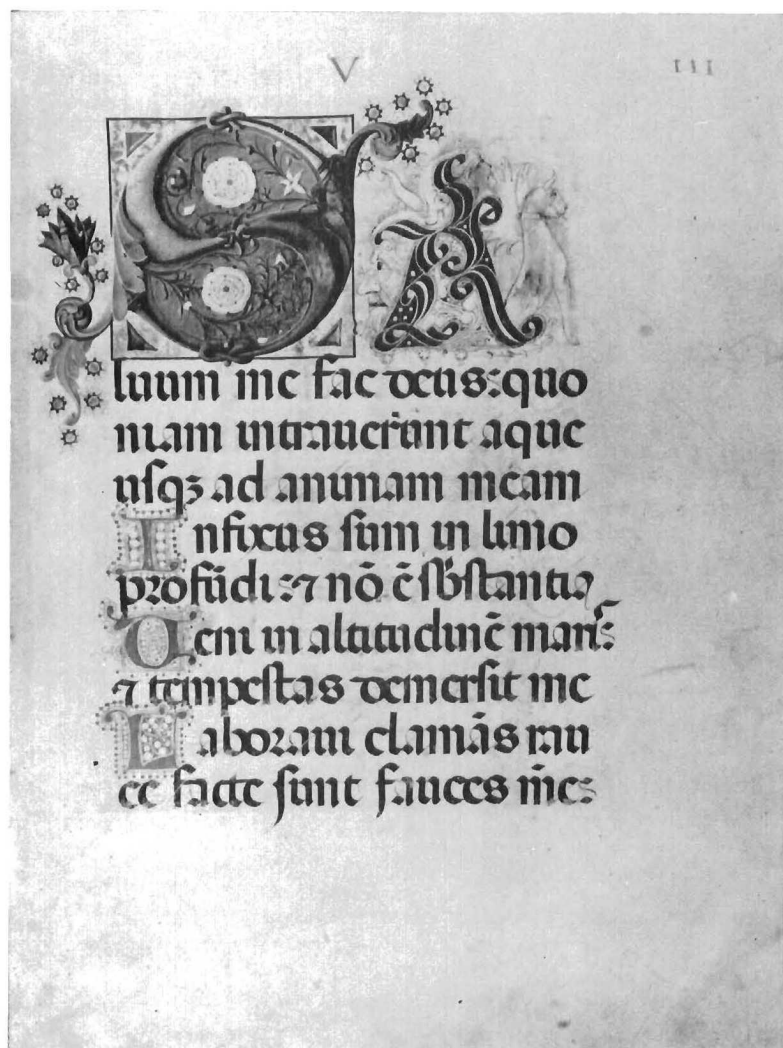 V III
SA
luum me fac deus: quo
niam intrauerunt aque
usqꝫ ad animam meam
Infixus sum in limo
profūdi: ⁊ nō ē sb̄stantia
Veni in altitudinē maris:
⁊ tempestas demersit me
Laboraui clamās rau
ce facte sunt fauces mē: